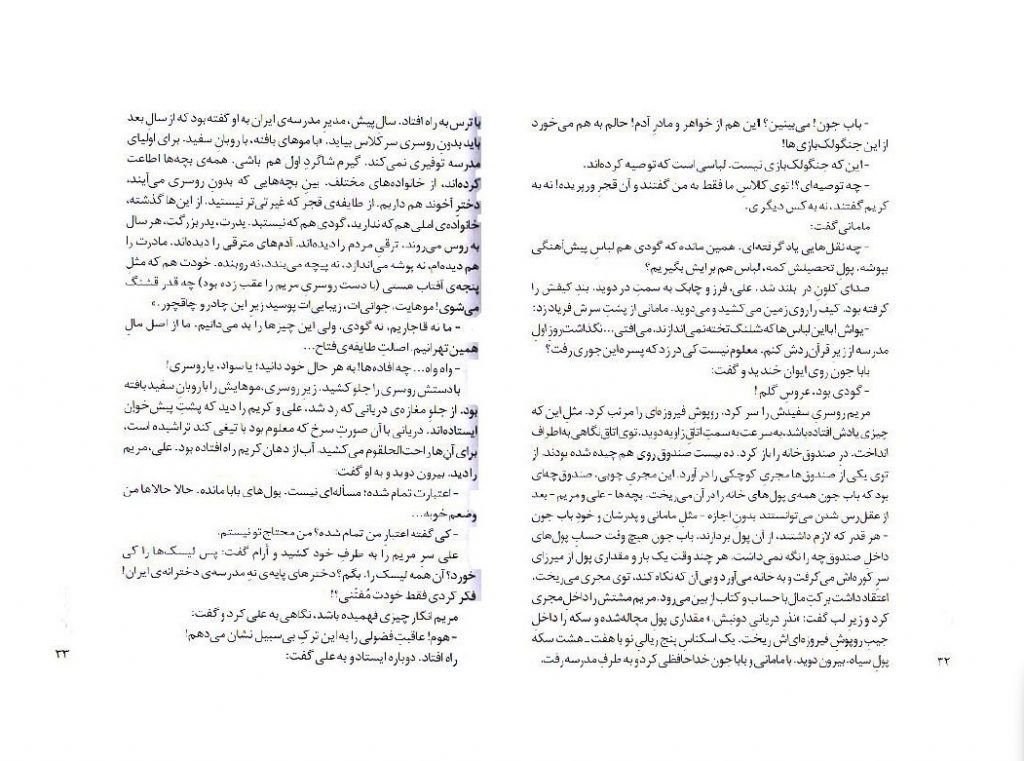 - باب جون! می‌بینین؟ این هم از خواهر و مادرِ آدم! حالم به هم می‌خورد
از این جنگولک‌بازی‌ها!
- این که جنگولک‌بازی نیست. لباسی است که توصیه کرده‌اند.
- چه توصیه‌ای؟! توی کلاسِ ما فقط به من گفتند و آن قجرِ ورپریده! نه به
کریم گفتند، نه به کس دیگری.
مامانی گفت:
- چه نقل‌هایی یاد گرفته‌ای. همین مانده که گودی هم لباسِ پیش‌آهنگی
بپوشه. پول تحصیلش کمه، لباس هم برایش بگیریم؟
صدای کلونِ در بلند شد. علی، فرز و چابک به سمتِ در دوید. بندِ کیفش را
گرفته بود. کیف را روی زمین می‌کشید و می‌دوید. مامانی از پشتِ سرش فریاد زد:
- یواش! با این لباس‌ها که شلنگ تخته نمی‌اندازند. می‌افتی... نگذاشت روزِ اولِ
مدرسه از زیر قرآن ردش کنم. معلوم نیست کی در زد که پسره این جوری رفت؟
بابا جون روی ایوان خندید و گفت:
- گودی بود، عروسِ گلم!
مریم روسری سفیدش را سر کرد، روپوش فیروزه‌ای را مرتب کرد. مثلِ این که
چیزی یادش افتاده باشد، به سرعت به سمتِ اتاقِ زاویه دوید، توی اتاق نگاهی به اطراف
انداخت. در صندوق خانه را باز کرد. ده بیست صندوق روی هم چیده شده بودند. از
توی یکی از صندوق‌ها مجریِ کوچکی را در آورد. این مجریِ چوبی، صندوق‌چه‌ای
بود که باب جون همه‌ی پول‌های خانه را در آن می‌ریخت. بچه‌ها - علی و مریم - بعد
از عقل‌رس شدن می‌توانستند بدون اجازه - مثلِ مامانی و پدرشان و خودِ باب جون
- هر قدر که لازم داشتند، از آن پول بردارند. باب جون هیچ وقت حسابِ پول‌های
داخل صندوق‌چه را نگه نمی‌داشت. هر چند وقت یک بار و مقداری پول از میرزای
سرِ کوره‌اش می‌گرفت و به خانه می‌آورد و بی آن که نگاه کند، توی مجری می‌ریخت.
اعتقاد داشت برکتِ مال با حساب و کتاب از بین می‌رود. مریم مشتش را داخلِ مجری
کرد و زیرِ لب گفت: «نذرِ دریانی دونبش.» مقداری پول مچاله‌شده و سکه را داخل
جیبِ روپوش فیروزه‌ای‌اش ریخت. یک اسکناس پنج ریالیِ نو با هفت - هشت سکه
پولِ سیاه. بیرون دوید. با مامانی و بابا جون خداحافظی کرد و به طرفِ مدرسه رفت.
۳۲
با ترس به راه افتاد. سالِ پیش، مدیرِ مدرسه‌ی ایران به او گفته بود که از سالِ بعد
باید بدونِ روسری سرِ کلاس بیاید. «با موهای بافته، با روبانِ سفید. برای اولیای
مدرسه توفیری نمی‌کند. گیرم شاگردِ اول هم باشی. همه‌ی بچه‌ها اطاعت
کرده‌اند، از خانواده‌های مختلف. بینِ بچه‌هایی که بدونِ روسری می‌آیند،
دخترِ آخوند هم داریم. از طایفه‌ی قجر که غیرتی‌تر نیستید. از این‌ها گذشته،
خانواده‌ی املی هم که ندارید، گودی هم که نیستید. پدرت، پدربزرگت، هر سال
به روس می‌روند. ترقیِ مردم را دیده‌اند. آدم‌های مترقی را دیده‌اند. مادرت را
هم دیده‌ام، نه پوشه می‌اندازد، نه پیچه می‌بندد، نه روبنده. خودت هم که مثلِ
پنجه‌ی آفتاب هستی (با دست روسری مریم را عقب زده بود) چه قدر قشنگ
می‌شوی! موهایت. جوانی‌ات، زیبایی‌ات پوسید زیرِ این چادر و چاقچور.»
- ما نه قاجاریم، نه گودی، ولی این چیزها را بد می‌دانیم. ما از اصل مالِ
همین تهرانیم. اصالتِ طایفه‌ی فتاح...
- واه واه... چه افاده‌ها! به هر حال خود دانید؛ یا سواد، یا روسری!
با دستش روسری را جلو کشید. زیرِ روسری، موهایش را با روبانِ سفید بافته
بود. از جلوِ مغازه‌ی دریانی که رد شد، علی و کریم را دید که پشتِ پیش‌خوان
ایستاده‌اند. دریانی با آن صورتِ سرخ که معلوم بود با تیغی کند تراشیده است،
برای آن‌ها راحت‌الحلقوم می‌کشید. آب از دهان کریم راه افتاده بود. علی، مریم
را دید. بیرون دوید و به او گفت:
- اعتبارت تمام شده؛ مسأله‌ای نیست. پول‌های بابا مانده. حالا حالاها من
وضعم خوبه...
- کی گفته اعتبارِ من تمام شده؟ من محتاجِ تو نیستم.
علی سرِ مریم را به طرفِ خود کشید و آرام گفت: پس لیسک‌ها را کی
خورد؟ آن همه لیسک را. بگم؟ دخترهای پایه‌ی نهِ مدرسه‌ی دخترانه‌ی ایران!
فکر کردی فقط خودت مُفَتّنی؟!
مریم انگار چیزی فهمیده باشد، نگاهی به علی کرد و گفت:
- هوم! عاقبت فضولی را به این ترکِ بی‌سبیل نشان می‌دهم!
راه افتاد. دوباره ایستاد و به علی گفت:
۲۳